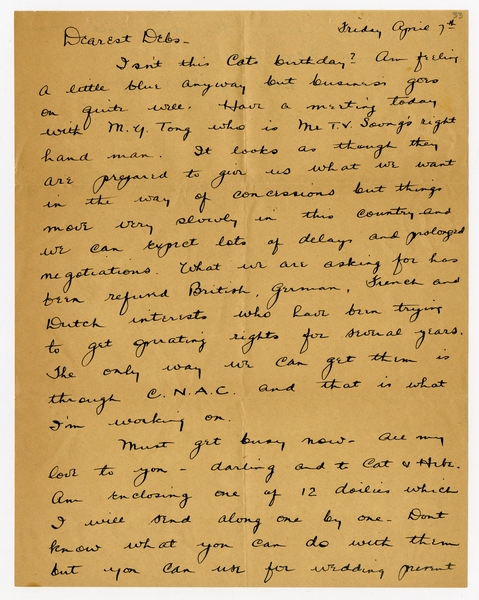 33
Friday April 7th
Dearest Debs -
Isn't this Cats birthday? Am feeling
a little blue anyway but business goes
on quite well. Have a meeting today
with M. Y. Tong who is Mr T.V. Soong's right
hand man. It looks as though they
are prepared to give us what we want
in the way of concessions but things
move very slowly in this country and
we can expect lots of delays and prolonged
negotiations. What we are asking for has
been refund British, German, French and
Dutch interests who have been trying
to get operating rights for several years.
The only way we can get them is
through C.N.A.C. and that is what
I'm working on.
Must get busy now - all my
love to you - darling and to Cat &
Am enclosing one of 12 doilies which
I will send along one by one - Dont
know what you can do with them
but you can use for wedding present